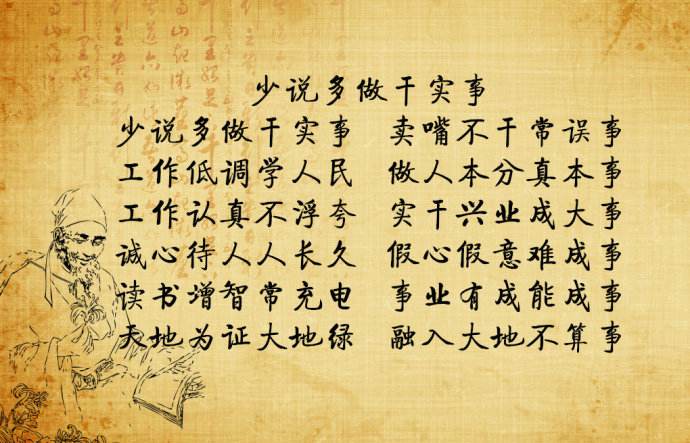 少说多做干实事
少说多做干实事 卖嘴不干常误事
工作低调学人民 做人本分真本事
工作认真不浮夸 实干兴业成大事
诚心待人人长久 假心假意难成事
读书增智常充电 事业有成能成事
天地为证大地绿 融入大地不算事